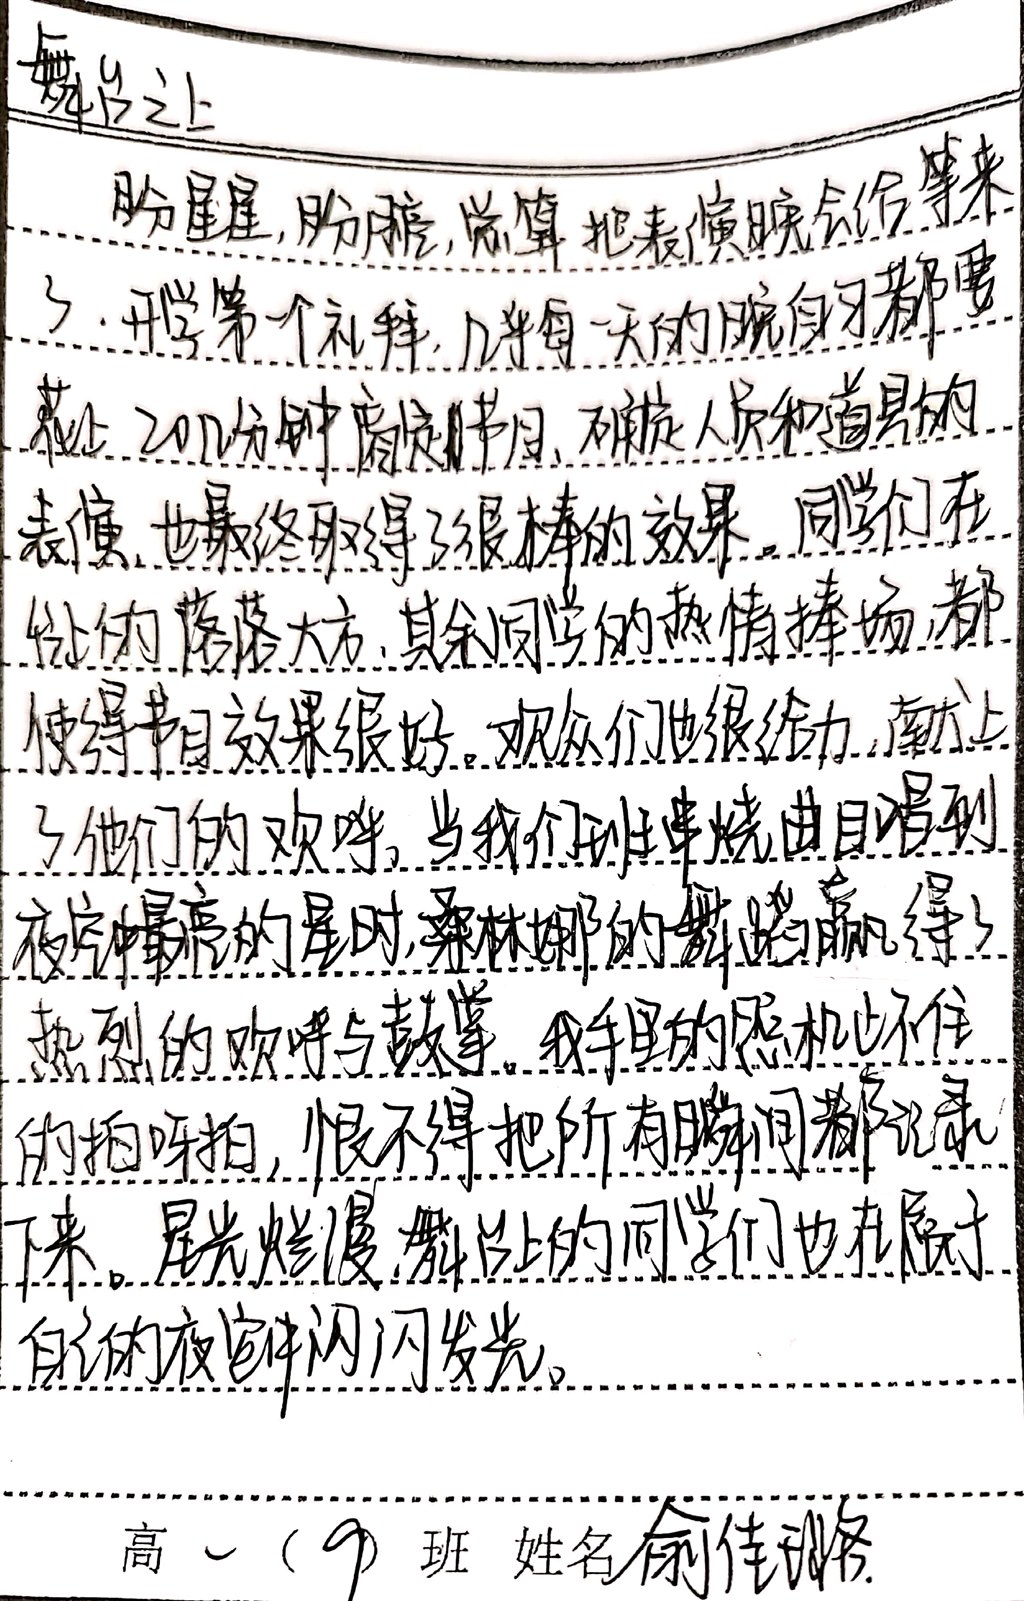 舞台之上
盼星星,盼月亮,总算把表演晚会给等来
了.开学第一个礼拜,几乎每一天的晚自习都要
花上20几分钟商定节目、确定人员和道具的
表演,也最终取得了很棒的效果。同学们在
台上的落落大方,其余同学的热情捧场,都
使得节目效果很好。观众们也很给力,献上
了他们的欢呼,当我们班串烧曲目唱到
夜空中最亮的星时,桑林娜的舞蹈赢得了
热烈的欢呼与鼓掌。我手里的照相机止不住
的拍呀拍,恨不得把所有瞬间都记录
下来。星光烂漫,舞台上的同学们也在属于
自己的夜空中闪闪发光。
高一(9)班 姓名 俞佳璐